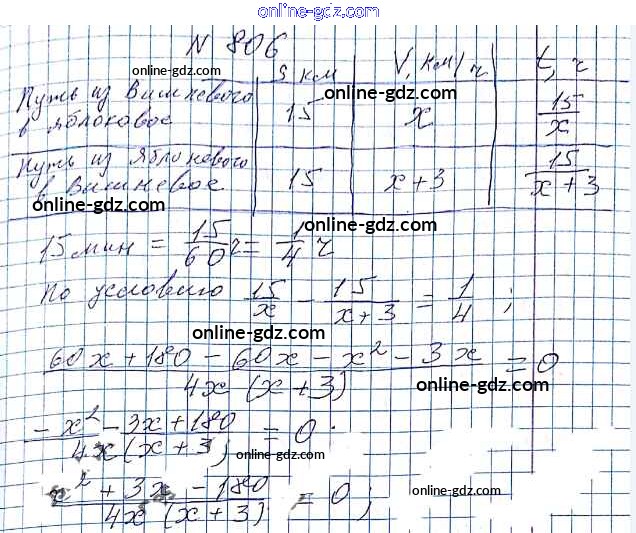 online-gdz.com
N 806
online-gdz.com
S км V, км/ч t, ч
Путь из Вишневого
в яблоковое 15 x 15/x
online-gdz.com
online-gdz.com
Путь из Яблоневого
в Вишневое 15 x+3 15/(x+3)
online-gdz.com
15 мин = 15/60 ч = 1/4 ч
online-gdz.com
По условию 15/x - 15/(x+3) = 1/4 ;
online-gdz.com
(60x + 180 - 60x - x² - 3x)/(4x(x+3)) = 0
online-gdz.com
(-x² - 3x + 180)/(4x(x+3)) = 0
online-gdz.com
(x² + 3x - 180)/(4x(x+3)) = 0;
online-gdz.com
online-gdz.com